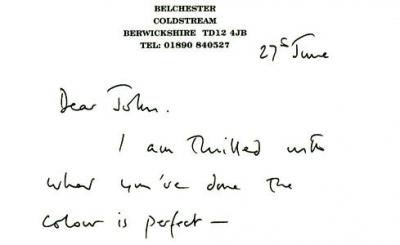 BELCHESTER
COLDSTREAM
BERWICKSHIRE TD12 4JB
TEL: 01890 840527
27th June
Dear John.
I am thrilled with
what you've done the
colour is perfect —